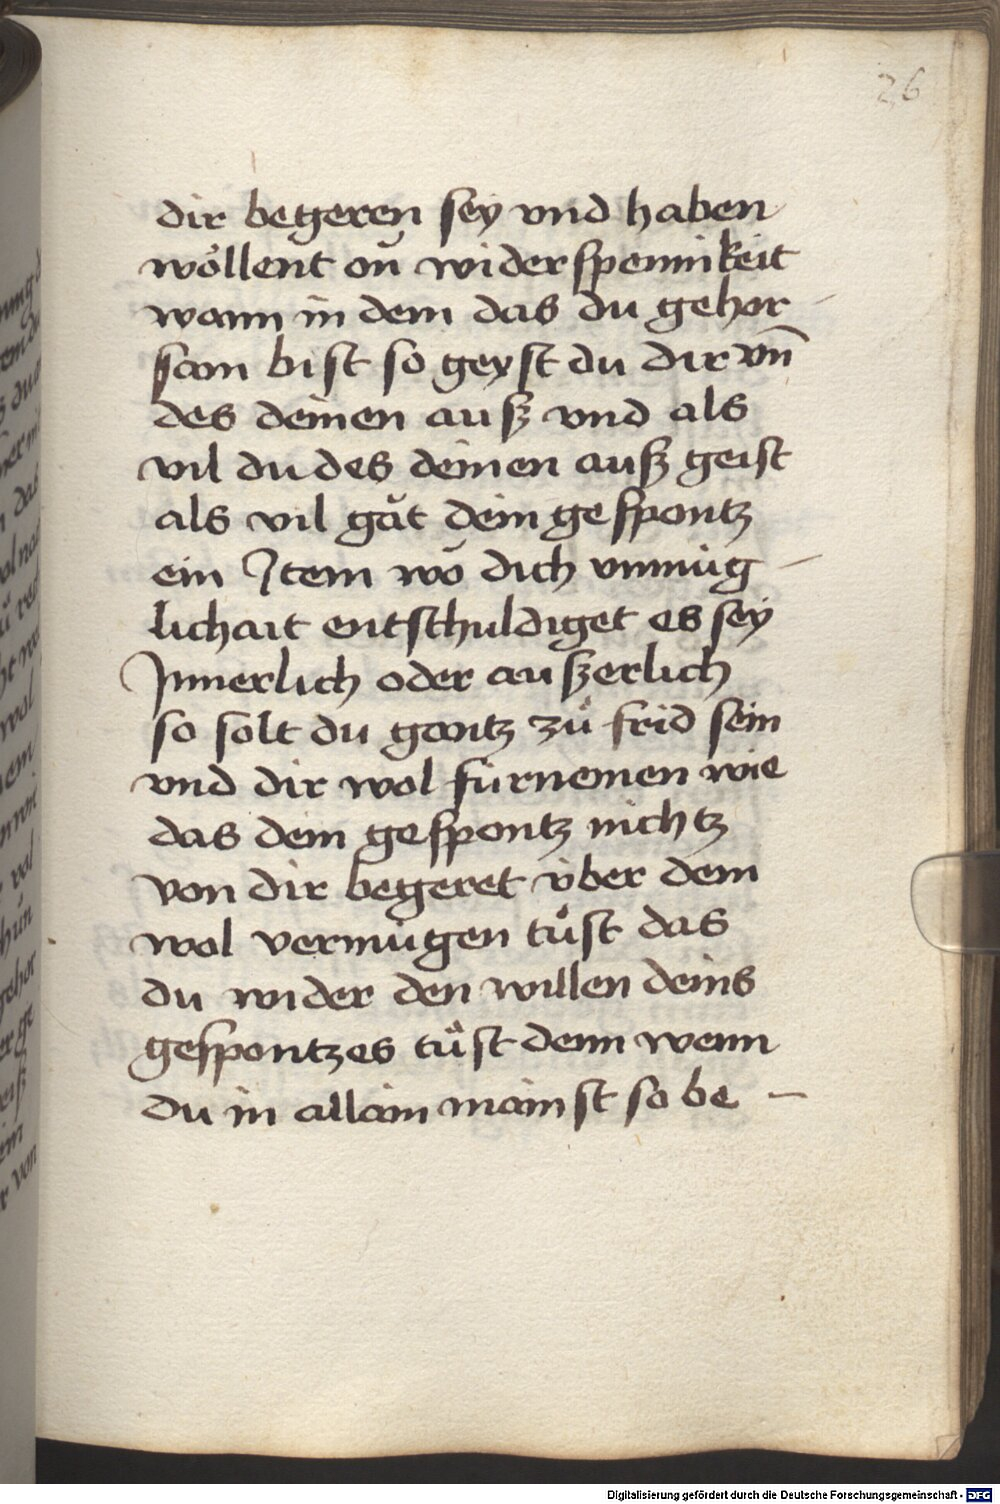 26
dir begeren sey vnd haben
wöllent on̄ widerspennikeit
wann in dem das du gehor
sam bist so geyst du dir vn̄
des deinen auß vnd als
vil du des deinen auß geist
als vil găt dein gespontz
ein Jtem wŏ dich vnmüg
lichait entschuldiget es sey
Jnnerlich oder außerlich
so solt du gantz zů frid sein
vnd dir wol fürnemen wie
das dein gespontz nichtz
von dir begeret v̈ber dein
wol vermügen tůst das
du wider den willen deins
gespontzes tůst denn wenn
du in allain mainst so be
Digitalisierung gefördert durch die Deutsche Forschungsgemeinschaft - DFG